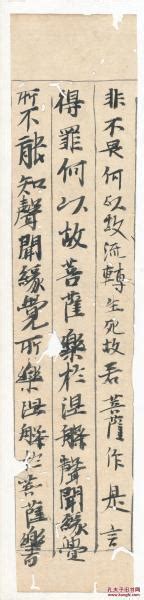 非不畏何以故流轉生死故若菩薩作是言
得罪何以故菩薩樂於涅槃聲聞緣覺
所不能知聲聞緣覺所樂涅槃於菩薩